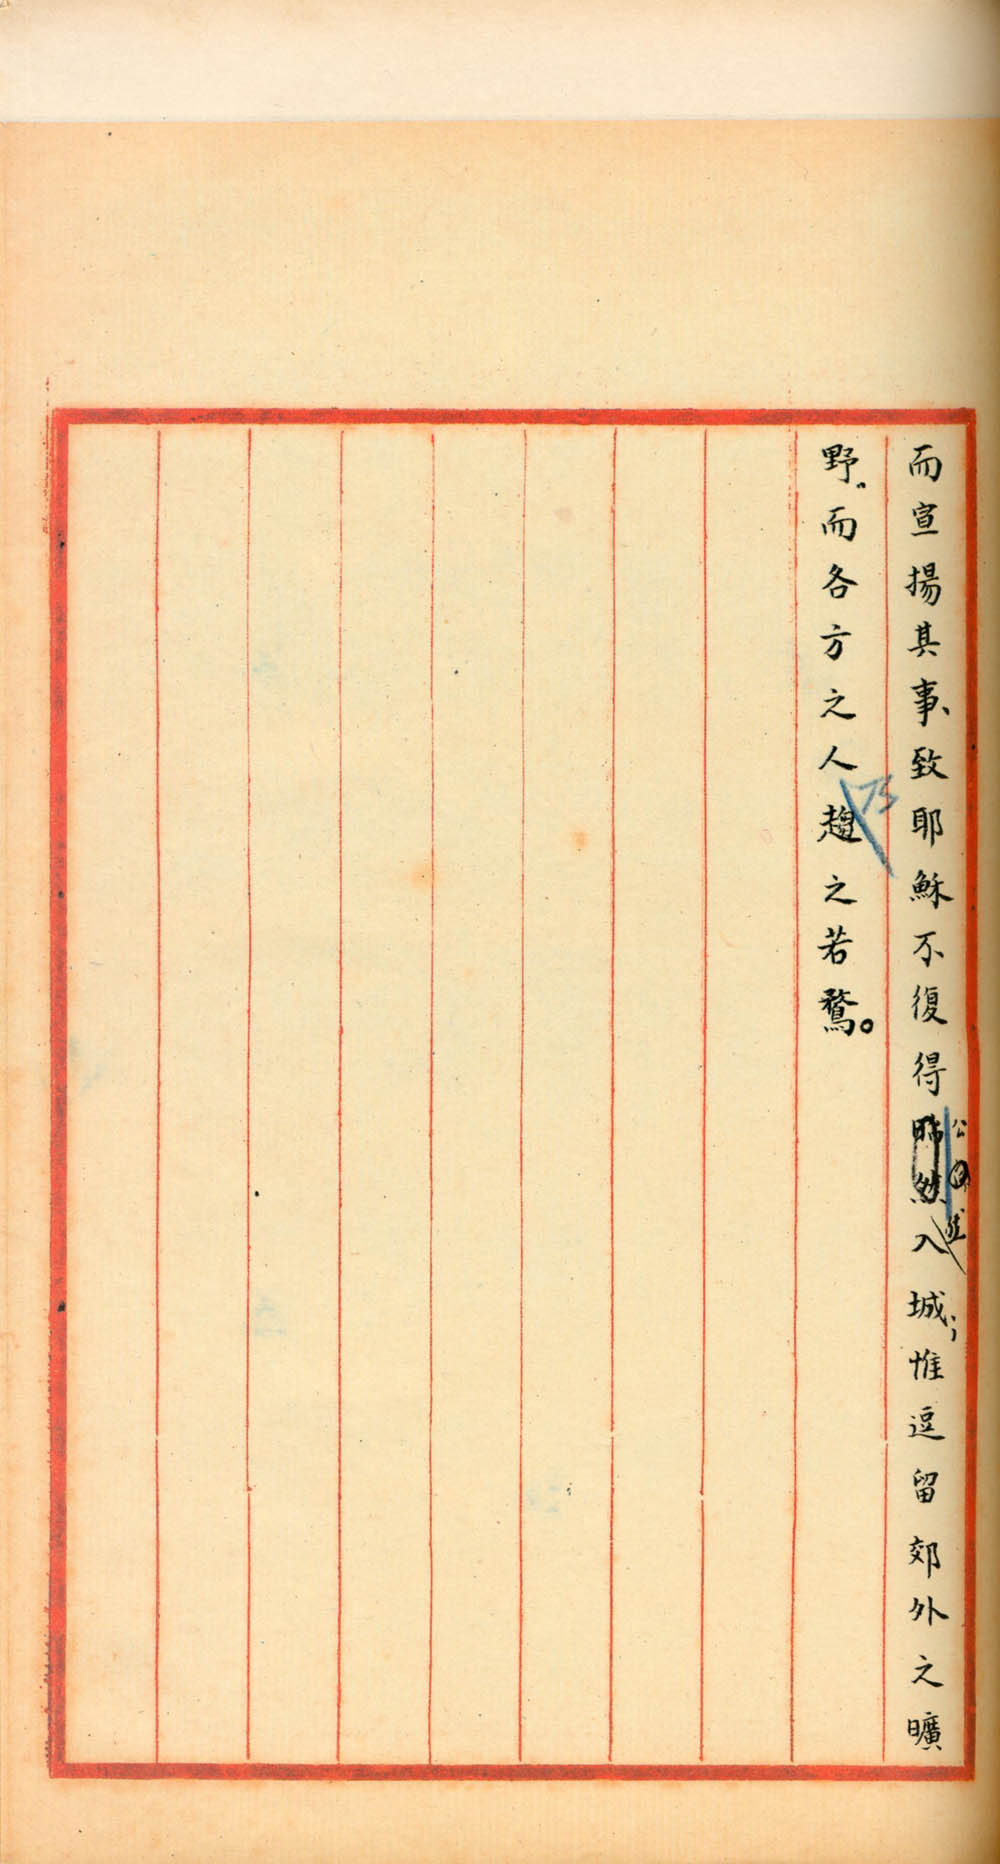 而宣揚其事、致耶穌不復得公然入城；惟逗留郊外之曠
野。而各方之人乃趨之若鶩。